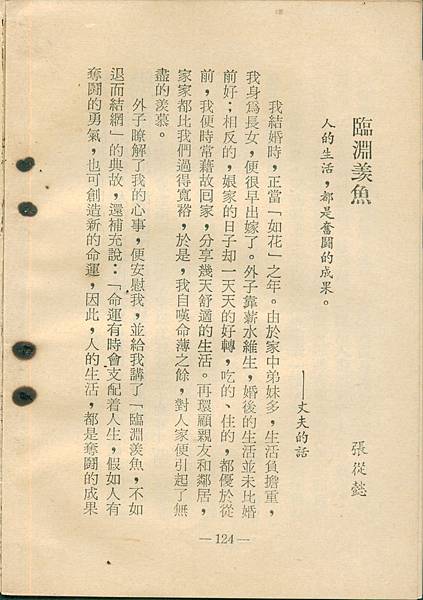 臨淵羨魚
張從懿
人的生活，都是奮鬪的成果。
——丈夫的話
我結婚時，正當「如花」之年。由於家中弟妹多，生活負擔重，
我身爲長女，便很早出嫁了。外子靠薪水維生，婚後的生活並未比婚
前好；相反的，娘家的日子却一天天的好轉，吃的、住的，都優於從
前，我便時常藉故回家，分享幾天舒適的生活。再環顧親友和鄰居，
家家都比我們過得寬裕，於是，我自嘆命薄之餘，對人家便引起了無
盡的羨慕。
外子瞭解了我的心事，便安慰我，並給我講了「臨淵羨魚，不如
退而結網」的典故，還補充說：「命運有時會支配着人生，假如人有
奪鬪的勇氣，也可創造新的命運，因此，人的生活，都是奪鬪的成果
—124—